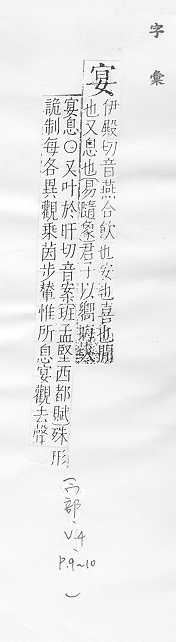 字彙
宴
伊殿切音燕合飲也安也喜也閒
也又息也易隨象君子以嚮晦入
宴息〇又叶於旰切音案班孟堅西都賦殊形
詭制每各異觀乘茵步輦惟所息宴觀去聲
(宀部、V.4、P.9~10)